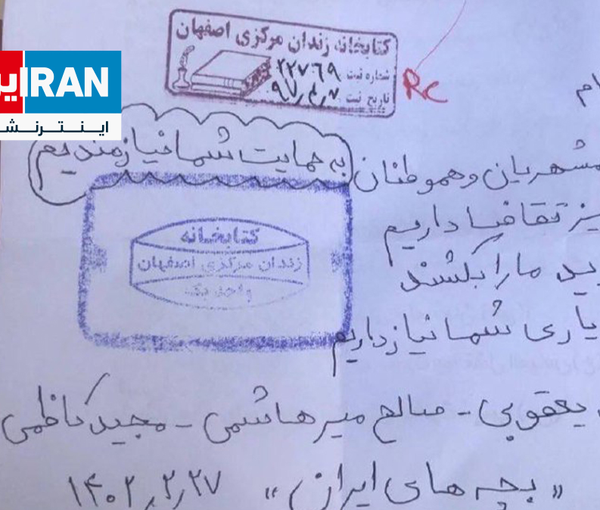 کتابخانه زندان مرکزی اصفهان
شماره ثبت ۲۲۷۶۹
تاریخ ثبت ۹۷٫۴٫۷
RC
IRAN
اینترنش
به حمایت شما نیازمندیم
مشهریان و هموطنان
یز تقاضا داریم
ید ما را بکشند
یاری شما نیاز داریم
کتابخانه
زندان مرکزی اصفهان
واحد یک
یعقوبی - صالح میرهاشمی - مجید کاظمی
«بچه های ایران» ۱۴۰۲٫۲٫۲۷